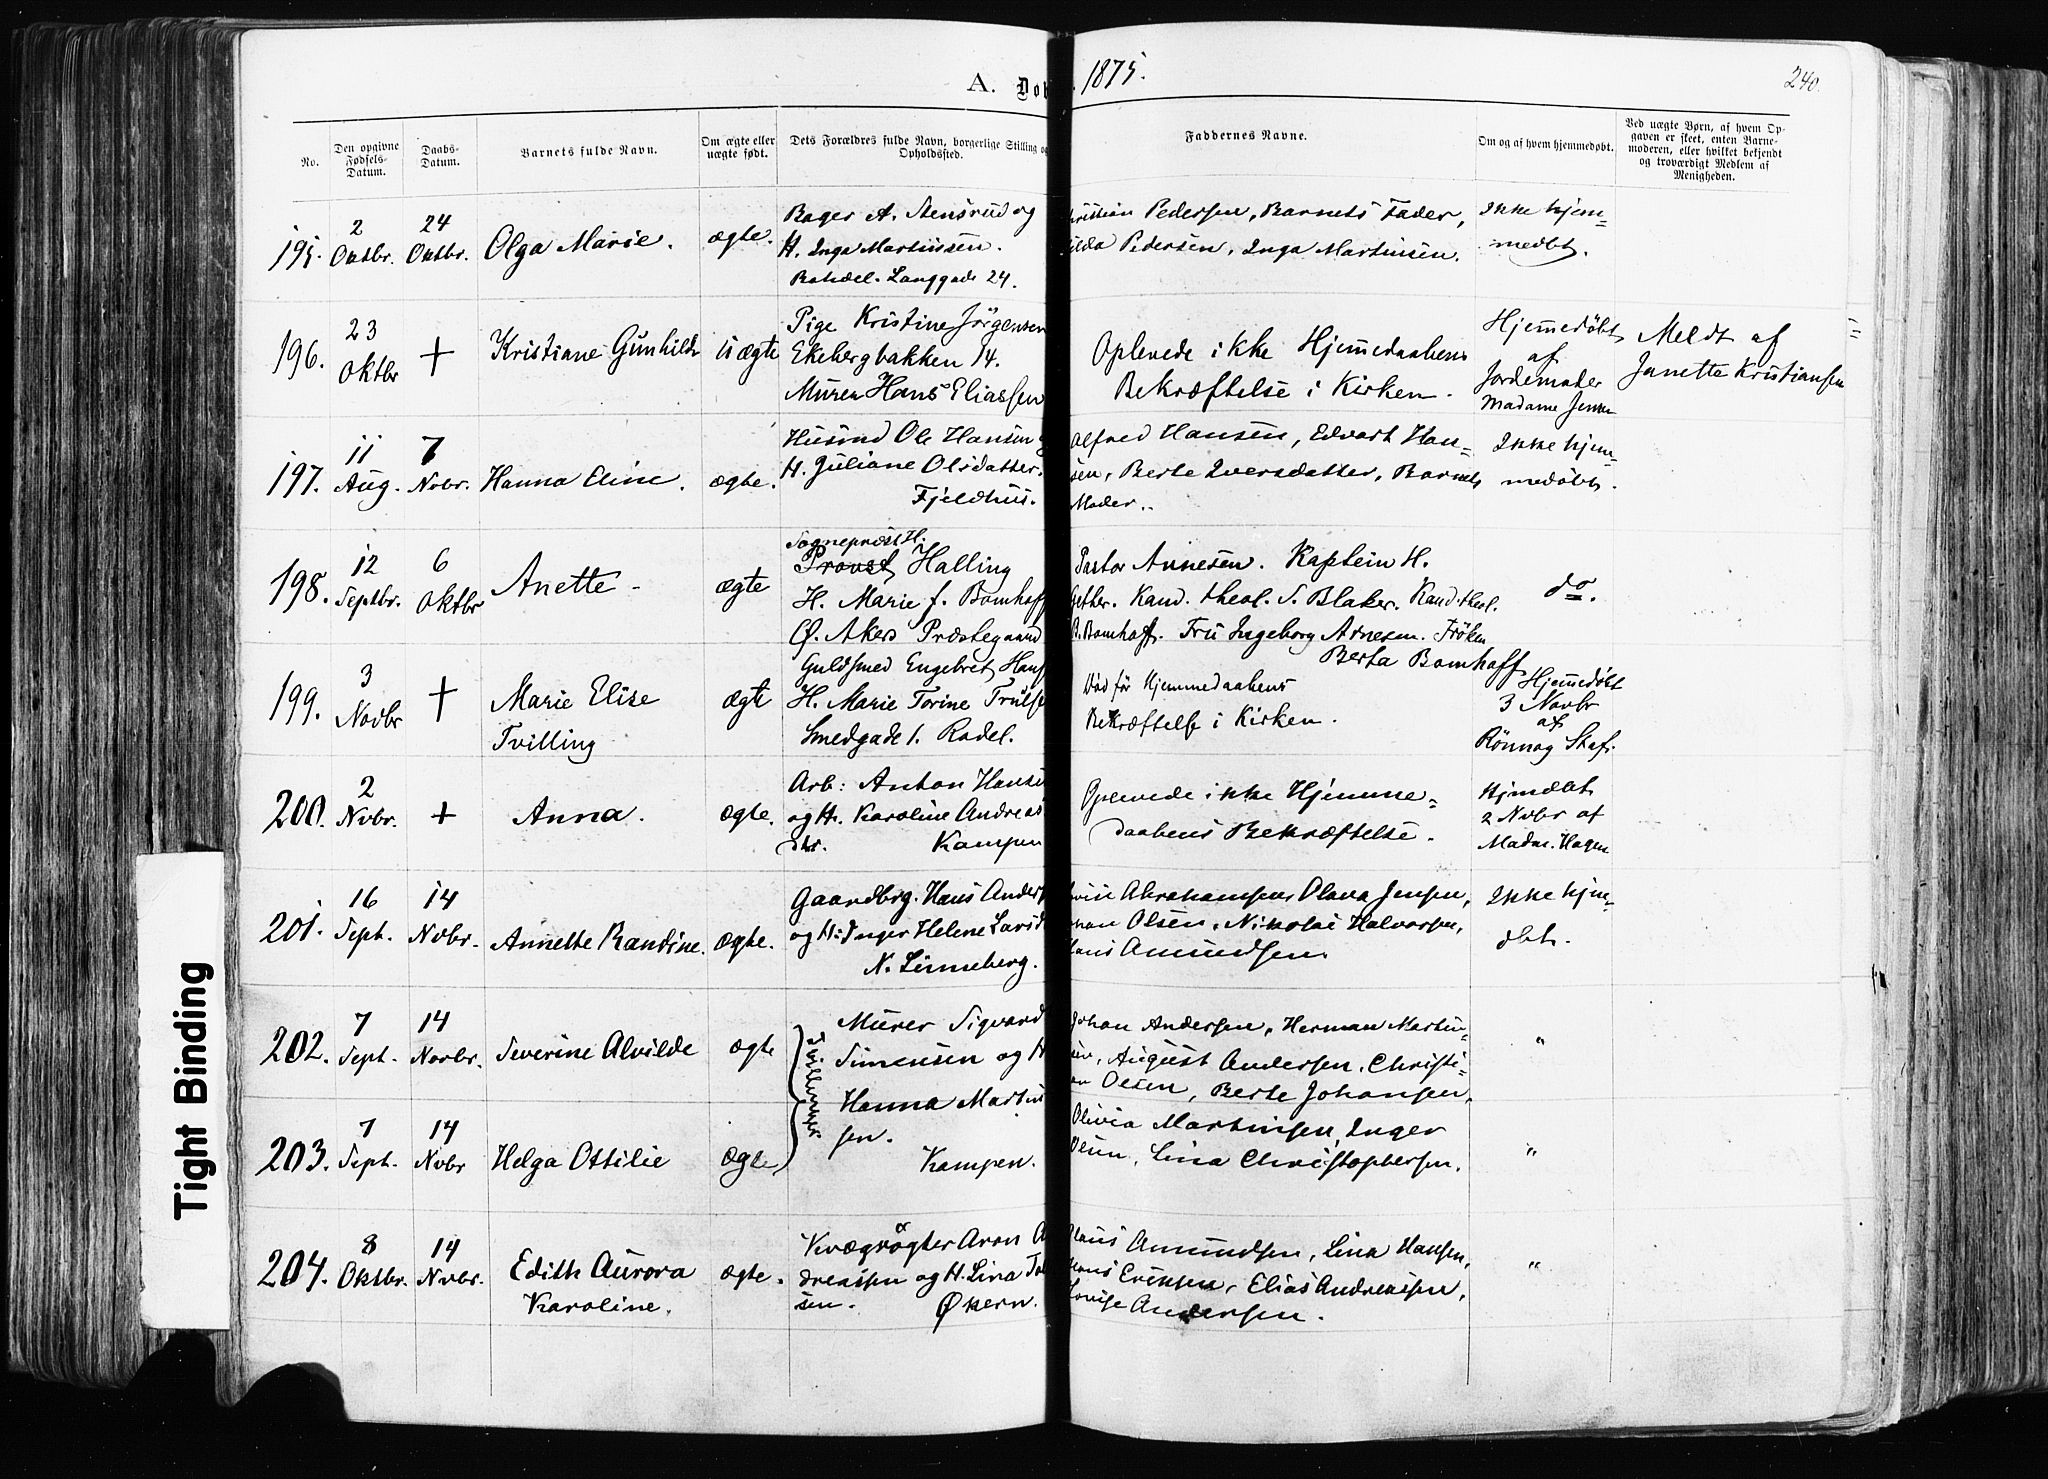 A. Døb 1875. 240.
No.
Den opgivne Fødsels-Datum.
Daabs-Datum.
Barnets fulde Navn.
Om ægte eller uægte født.
Dets Forældres fulde Navn, borgerlige Stilling og Opholdssted.
Faddernes Navne.
Om og af hvem hjemmedøbt.
Ved uægte Børn, af hvem Opgaven er skeet, enten Barnemoderen, eller hvilket bekjendt og troværdigt Medlem af Menigheden.
195. 2 Oktbr. 24 Oktbr. Olga Marie. ægte.
Bager A. Stensrud og
H. Inga Martinsen.
Langgade 24.
Christian Pedersen, Barnets Fader,
Pedersen, Inga Martinsen.
Ikke hjem=
medbt.
196. 23 Oktbr + Kristiane Gunhilde Uægte
Pige Kristine Jörgensen
Ekebergbakken 14.
Murer Hans Eliassen
Oplevede ikke Hjemmedaabens
Bekræftelse i Kirken.
Hjemmedøbt
af
Jordemoder
Madame Jensen
Meldt af
Janette Kristiansen
197. 11 Aug. 7 Nvbr. Hanna Eline. ægte.
Husmd Ole Hansen
H. Juliane Olsdatter.
Fjeldhus.
Alfred Hansen, Edvart Han=
sen, Berte Iversdatter, Barnets
Moder.
Ikke hjem=
medøbt.
198. 12 Septbr. 6 Oktbr Anette - ægte
Sognepræst H.
Provst Halling
H. Marie f. Bomhoff
Ø. Akers Præstegaard
Pastor Arnesen. Kaptein H.
Kand. theol. S. Blaker. Kand. theol.
B. Bomhoff. Fru Ingeborg Arnesen. Frøken
Berta Bomhoff
do.
199. 3 Novbr + Marie Elise ægte
Tvilling
Guldsmed Engebret Hans
H. Marie Torine Truls
Smedgade 1. Rodel.
Död för Hjemmedaabens
Bekræftelse i Kirken.
Hjemmedöbt
3 Novbr
af
Rönnog Staf.
200. 2 Nvbr. + Anna. ægte.
Arb: Anton Hansen
og H. Karoline Andreas
dtr. Kampen
Oplevede ikke Hjemme=
daabens Bekræftelse.
Hjmdbt
2 Nvbr af
Madm. Hagen
201. 16 Sept. 14 Nvbr. Annette Randine. ægte.
Gaardbrg. Hans Anders
og H: Inger Helene Larsd
N. Linneberg.
Abrahamsen, Olava Jensen,
Olsen, Nikolai Halvorsen,
Hans Amundsen.
Ikke hjm=
dbt.
202. 7 Sept. 14 Novbr. Severine Alvilde ægte
Tvillinger
Murer Sigvard
Simensen og H
Hanna Martin
sen.
Kampen.
Johan Andersen, Herman Martin=
sen, August Andersen, Christi=
an Olsen, Berte Johansen,
"
203. 7 Sept. 14 Nvbr Helga Ottilie ægte
Olivia Martinsen, Inger
Olsen, Lina Christophersen.
"
204. 8 Oktbr. 14 Nvbr. Edith Aurora ægte.
Karoline.
Kvægrögter Aron A
dreassen og H. Lina
sen. Økern.
Claus Amundsen, Lina Hansen,
Hans Eriksen, Elias Andreasen,
Lovise Andersen.
"
Tight Binding